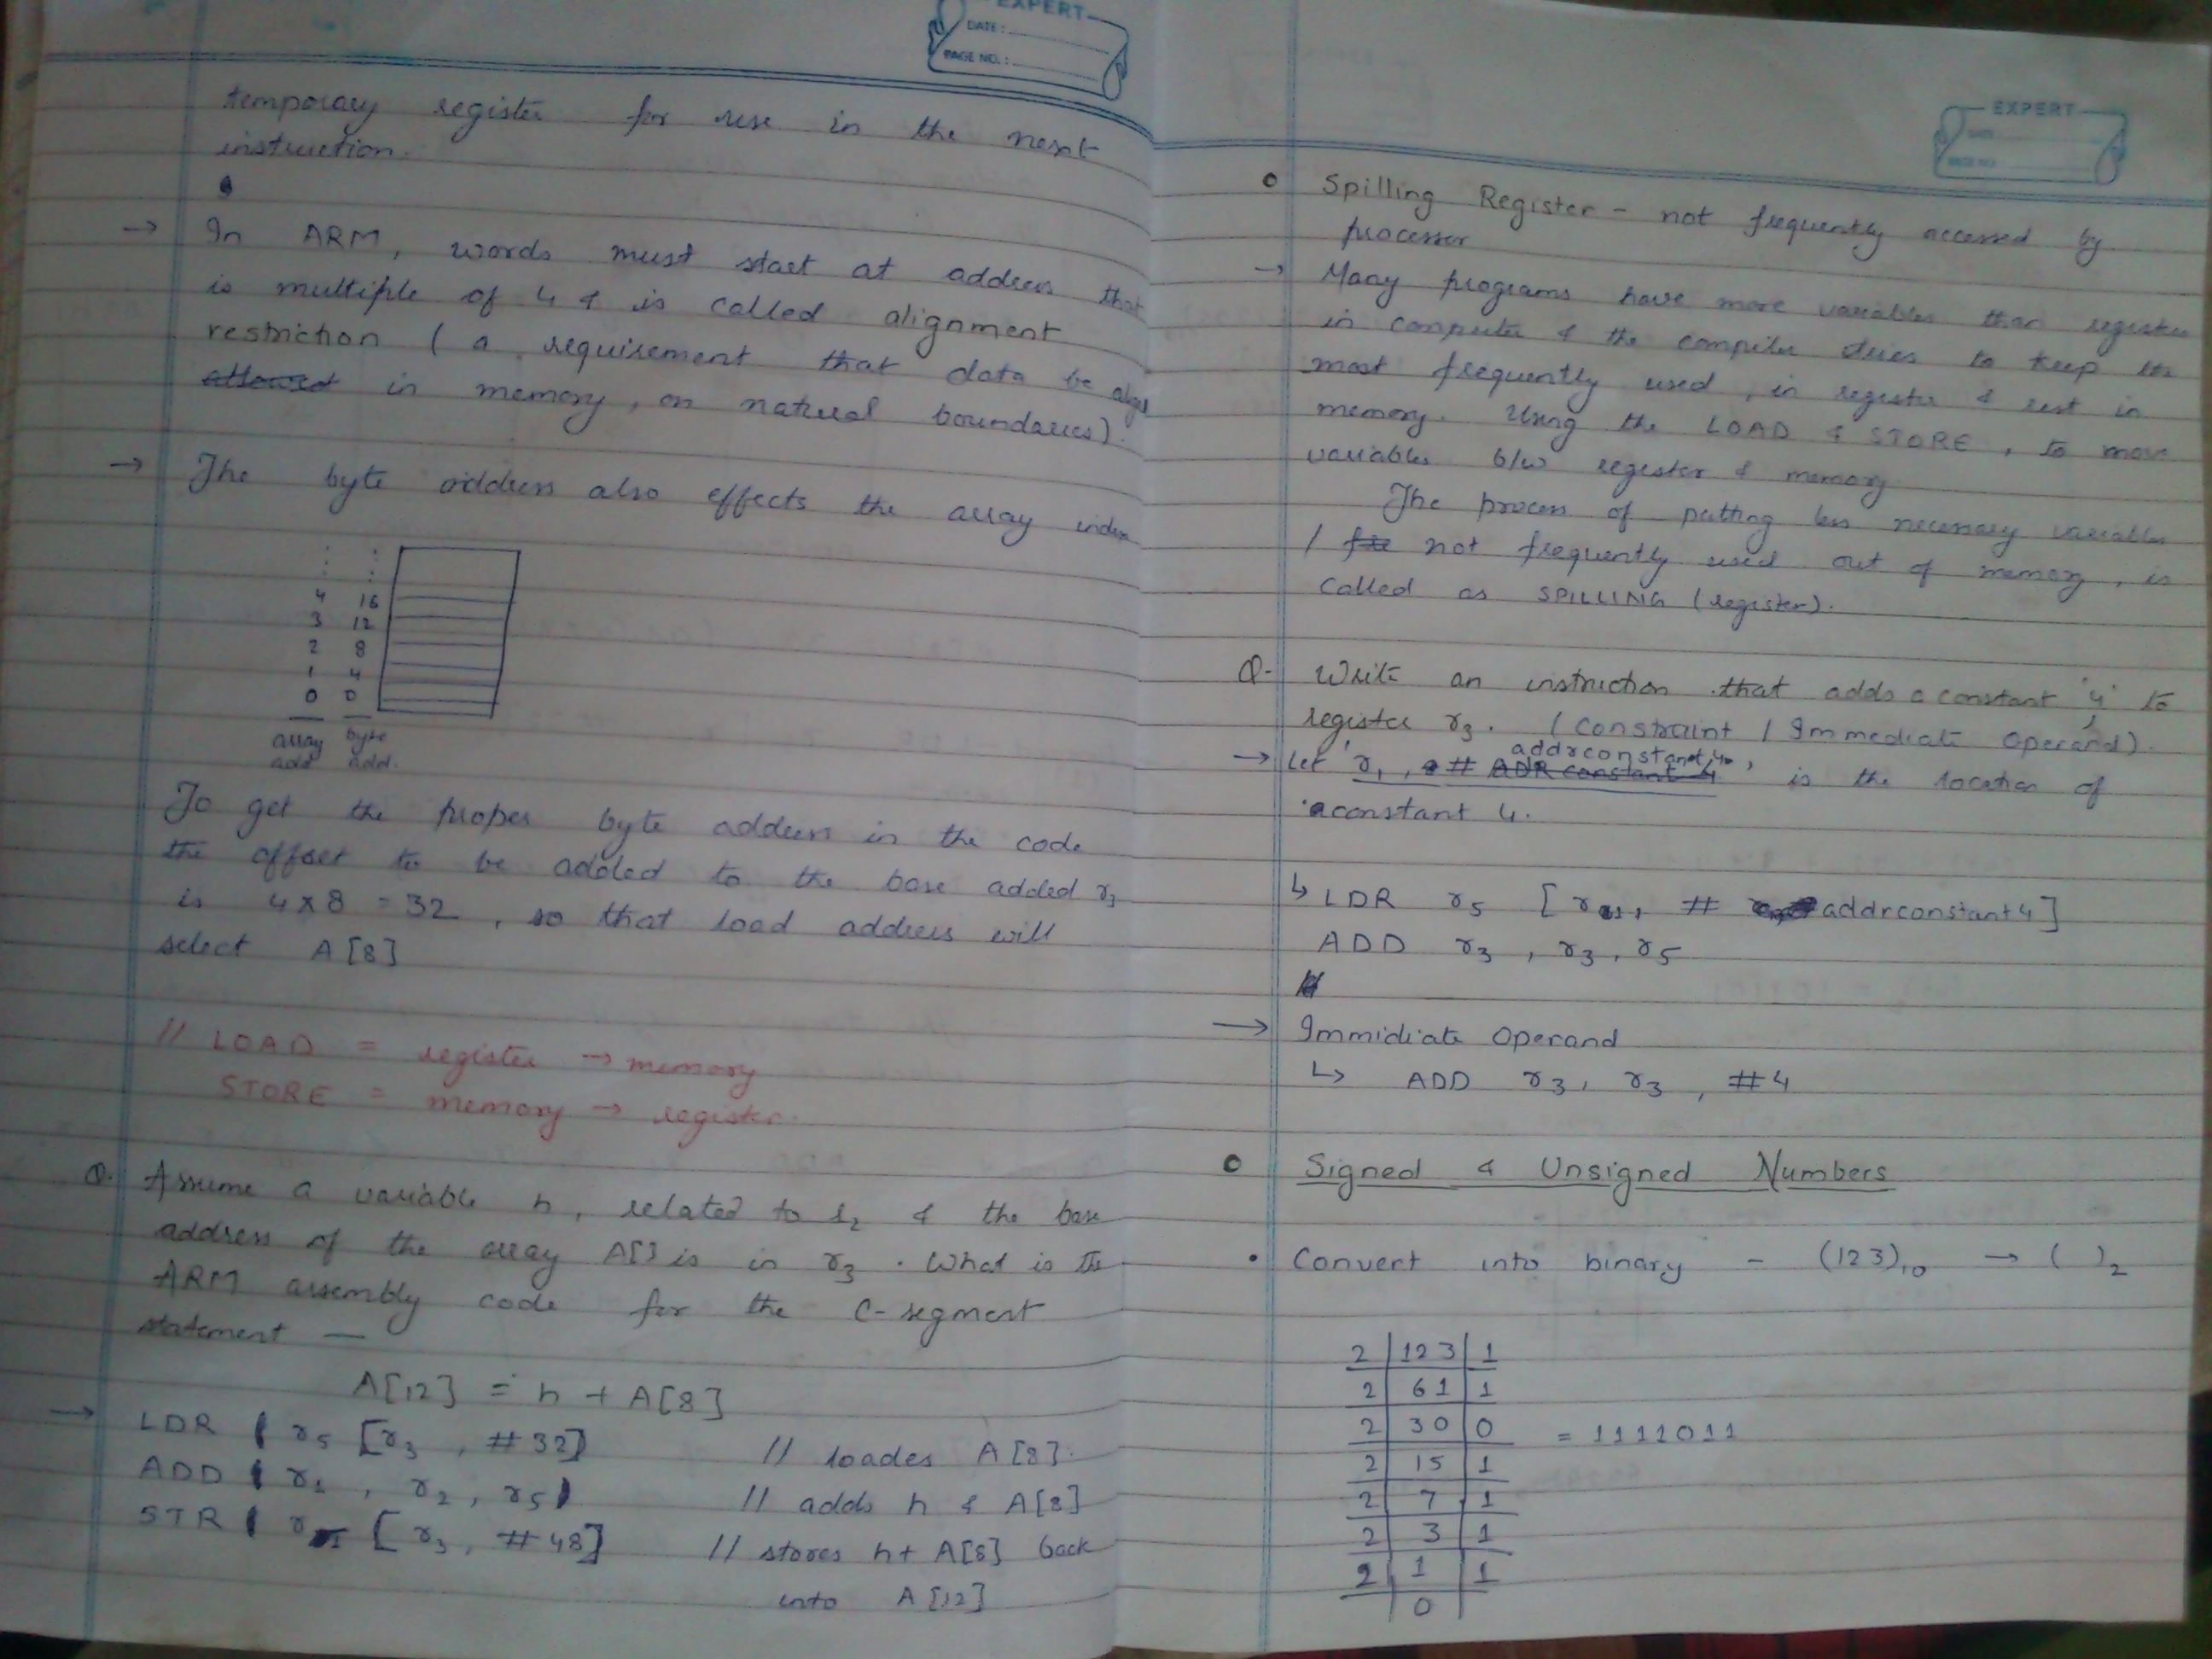 EXPERT
DATE:
PAGE NO.:
temporary register for use in the next
instruction.
→ In ARM, words must start at address that
is multiple of 4 & is called alignment
restriction ( a requirement that data be
in memory, on natural boundaries).
→ The byte address also effects the array index
4 16
3 12
2 8
1 4
0 0
array byte
add add.
To get the proper byte address in the code
the offset to be added to the base added r3
is 4x8 = 32, so that load address will
select A[8]
// LOAD = register → memory
STORE = memory → register.
Q. Assume a variable h, related to r2 & the base
address of the array A[] is in r3. What is the
ARM assembly code for the C-segment
statement —
A[12] = h + A[8]
→ LDR r5 [r3, #32] // loades A[8].
ADD r1, r2, r5 // adds h & A[8]
STR [r3, #48] // stores h+ A[8] back
into A[12]
EXPERT
DATE
PAGE NO.
o Spilling Register - not frequently accessed by
processor
→ Many programs have more variables than register
in computer & the compiler tries to keep the
most frequently used, in register & rest in
memory. Using the LOAD & STORE, to move
variables b/w register & memory
The process of putting less necessary variables
/ not frequently used out of memory, is
called as SPILLING (register).
Q- Write an instruction that adds a constant '4' to
register r3. (Constraint / Immediate operand).
→ Let 'r1, # addrconstant4', is the location of
aconstant 4.
↳ LDR r5 [r1, # addrconstant4]
ADD r3, r3, r5
→ Immidiate operand
↳ ADD r3, r3, #4
o Signed & Unsigned Numbers
• Convert into binary - (123)10 → ( )2
2 123 1
2 61 1
2 30 0 = 1111011
2 15 1
2 7 1
2 3 1
2 1 1
0